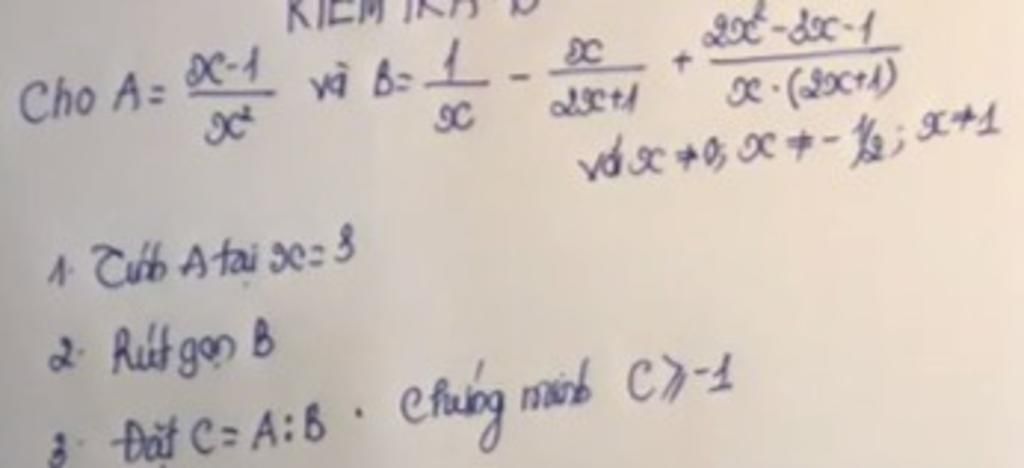 KIỂM TRA
Cho A = \frac{x-1}{x^2} và B = \frac{1}{x} - \frac{x}{2x+1} + \frac{2x^2-3x-1}{x \cdot (2x+1)}
với x ≠ 0; x ≠ -1/2; x ≠ 1
1. Tính A tại x = 3
2. Rút gọn B
3. Đặt C = A : B . Chứng minh C ⩾ -1